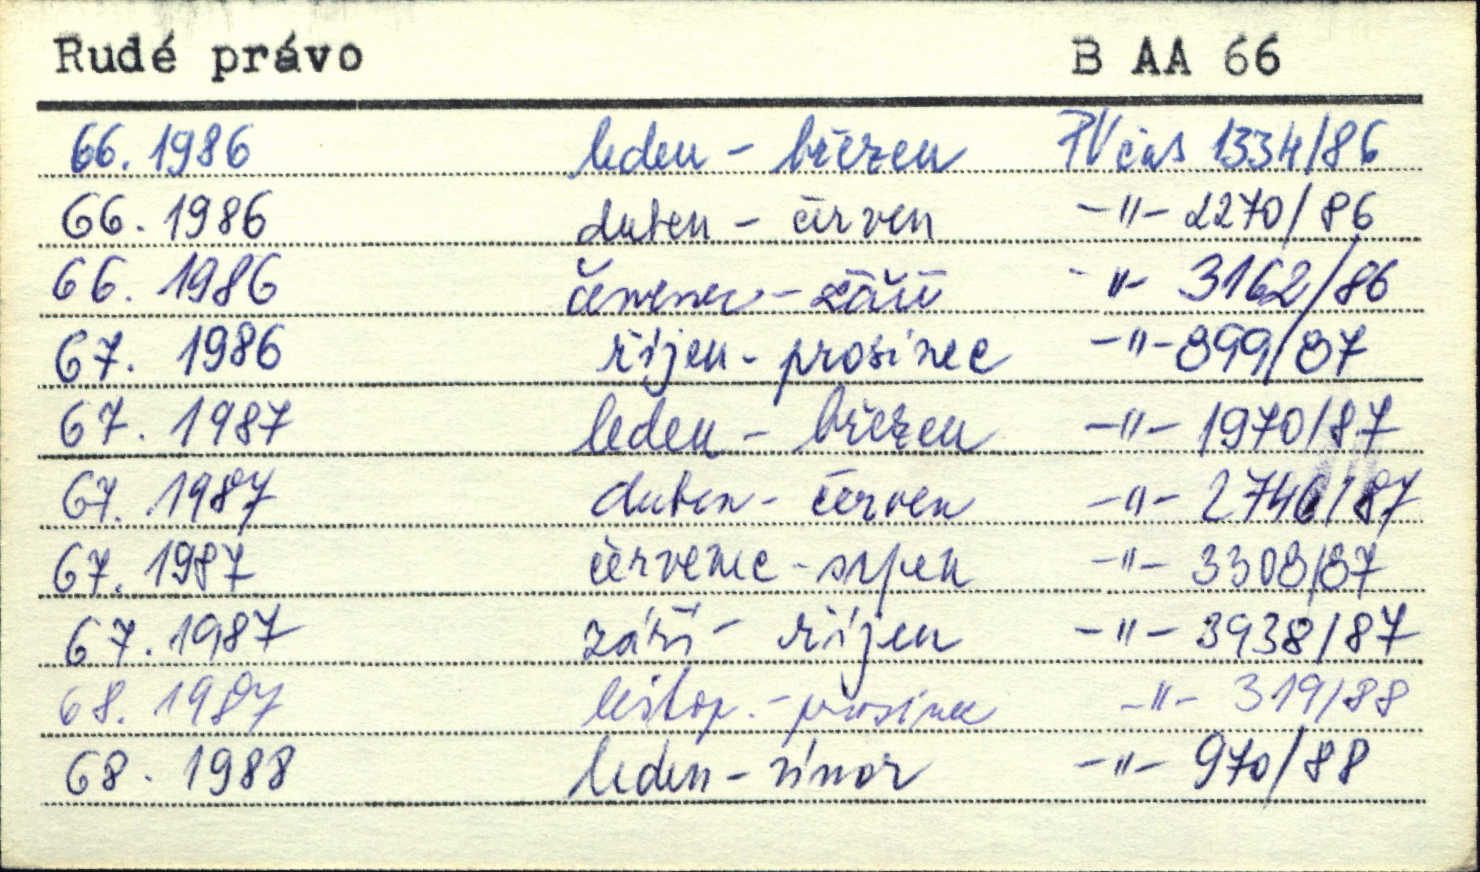 Rudé právo B AA 66
66. 1986 leden - březen PV čas 1334/86
66. 1986 duben - červen -"- 2270/86
66. 1986 červenec - září -"- 3162/86
67. 1986 říjen - prosinec -"- 899/87
67. 1987 leden - březen -"- 1970/87
67. 1987 duben - červen -"- 2746/87
67. 1987 červenec - srpen -"- 3308/87
67. 1987 září - říjen -"- 3938/87
68. 1987 listop. - prosinec -"- 319/88
68. 1988 leden - únor -"- 970/88